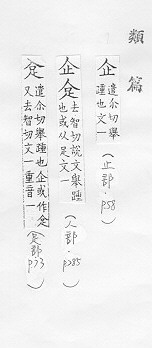 類篇
企 遣尒切舉
踵也文一
(止部·p58)
企𠈮 去智切說文舉踵
也或从足文一
(人部·p285)
𠈮 遣尒切舉踵也企或作𠈮
又去智切文一重音一
(足部 p73)